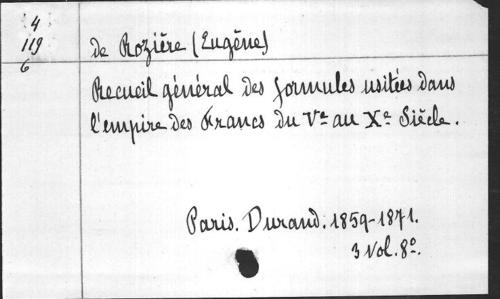 4
119
6
de Rozière (Eugène)
Recueil général des formules usitées dans
l'empire des Francs du Ve au Xe Siècle.
Paris. Durand. 1859-1871.
3 Vol. 8o.